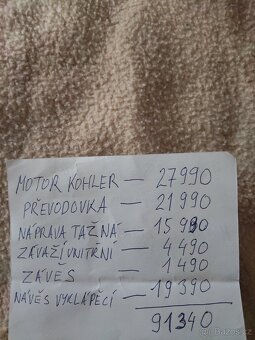 MOTOR KOHLER — 27990
PŘEVODOVKA — 21990
NÁPRAVA TAŽNÁ — 15990
ZÁVAŽÍ VNITŘNÍ — 4490
ZÁVĚS — 1490
NÁVĚS VYKLÁPĚCÍ — 19390
91340